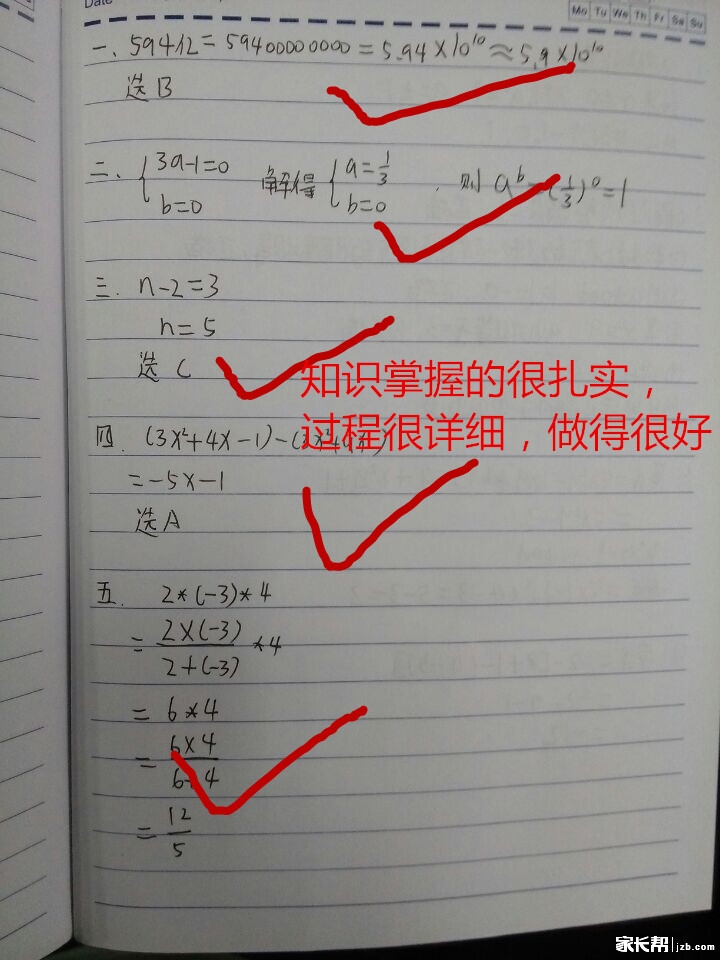 Date
Mo Tu We Th Fr Sa Su
一、594亿=59400000000=5.94×10¹⁰≈5.9×10¹⁰
选B
二、{3a-1=0 b=0 解得{a=1/3 b=0 ,则 aᵇ=(1/3)⁰=1
三. n-2=3
n=5
选C
知识掌握的很扎实，
过程很详细，做得很好
四. (3x²+4x-1)-(3x²+9x)
=-5x-1
选A
五. 2*(-3)*4
=2×(-3)/2+(-3)*4
=6*4
=6×4/6+4
=12/5
家长帮 jzb.com